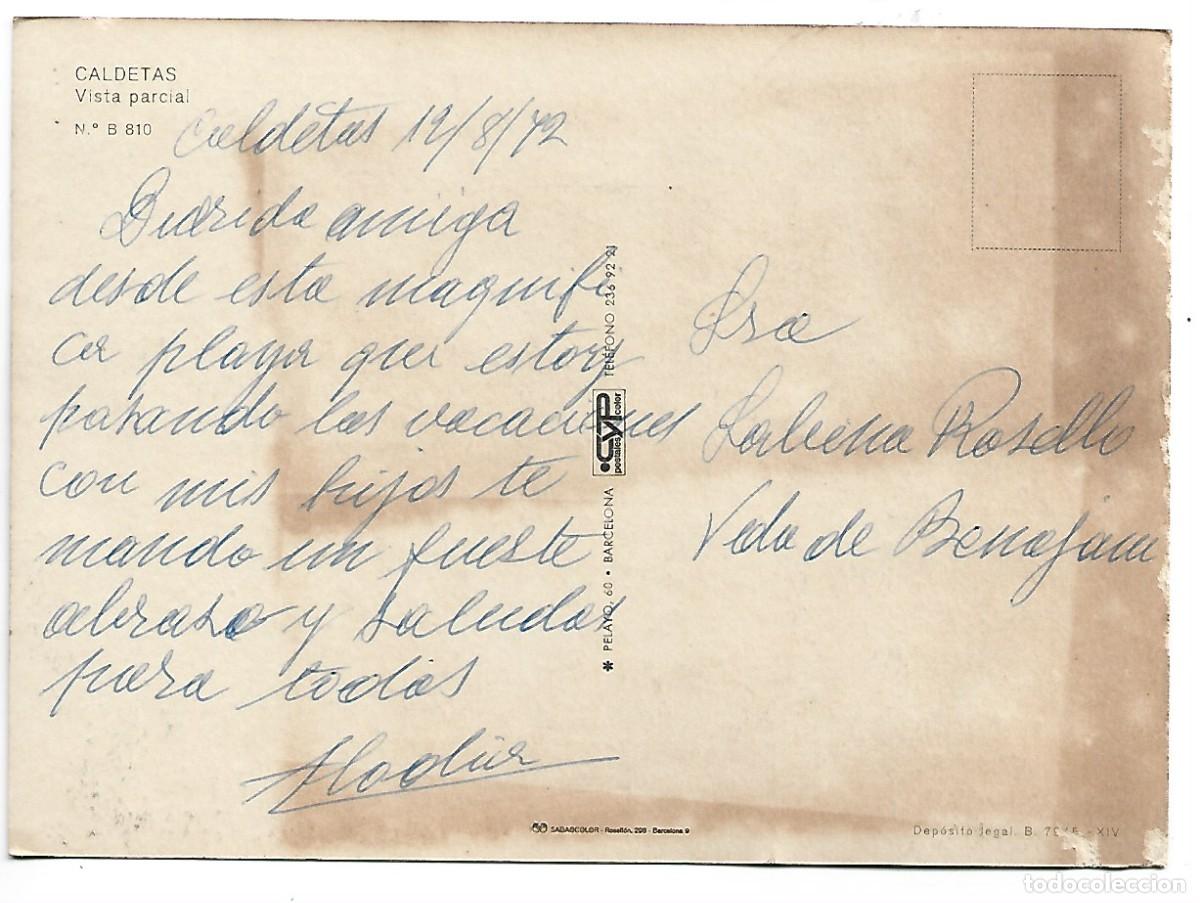 CALDETAS
Vista parcial
N.º B 810
Caldetas 12/8/72
Querida amiga
desde esta magnifi
ca playa que estoy
pasando las vacaciones
con mis hijos te
mando un fueste
abraso y saludos
para todas
Aladia
Sra
Sabina Rosello
Veda de Benajam
* PELAYO, 60 • BARCELONA
CYP
postales color
TELÉFONO 236 92 21
SABADCOLOR - Rosellón, 298 - Barcelona 9
Depósito legal. B. - XIV
todocoleccion